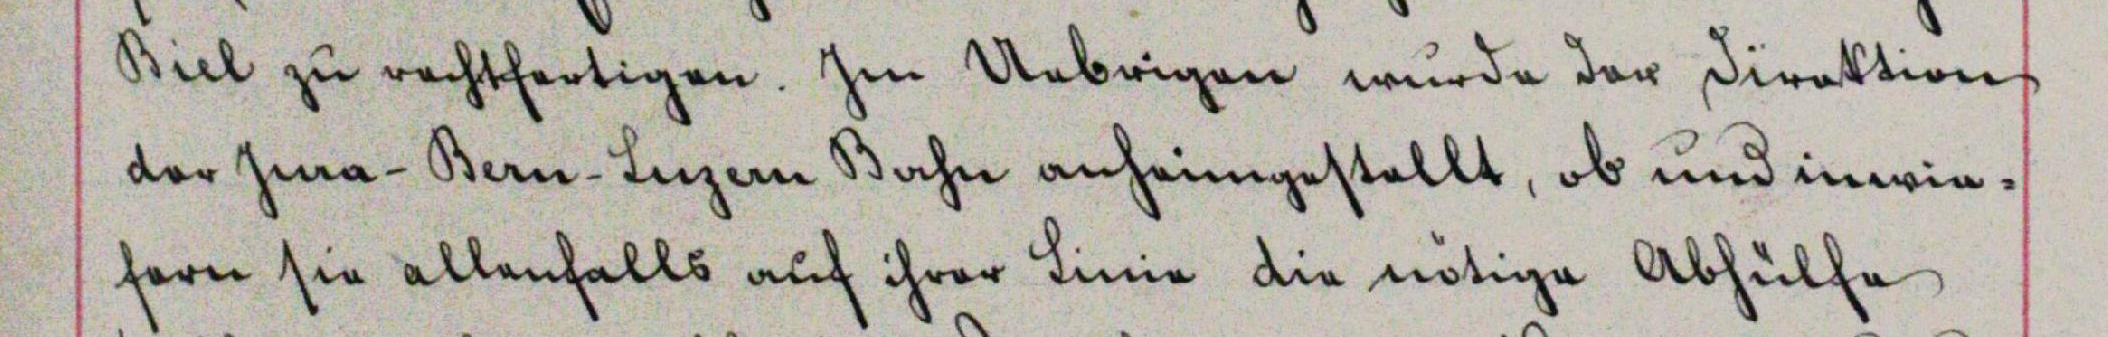 Biel zu rechtfertigen. Im Uebrigen wurde der Direktion
der Jura-Bern-Luzern Bahn anheimgestellt, ob und inwie-
fern sie allenfalls auf ihrer Linie die nötige Abhülfe